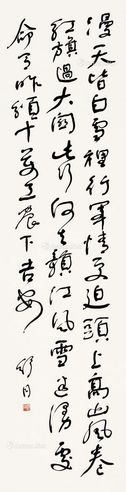 漫天皆白雪裡行軍情更迫頭上高山風卷
紅旗過大関此行何去贛江風雪迷漫處
命令昨頒十萬工農下吉安